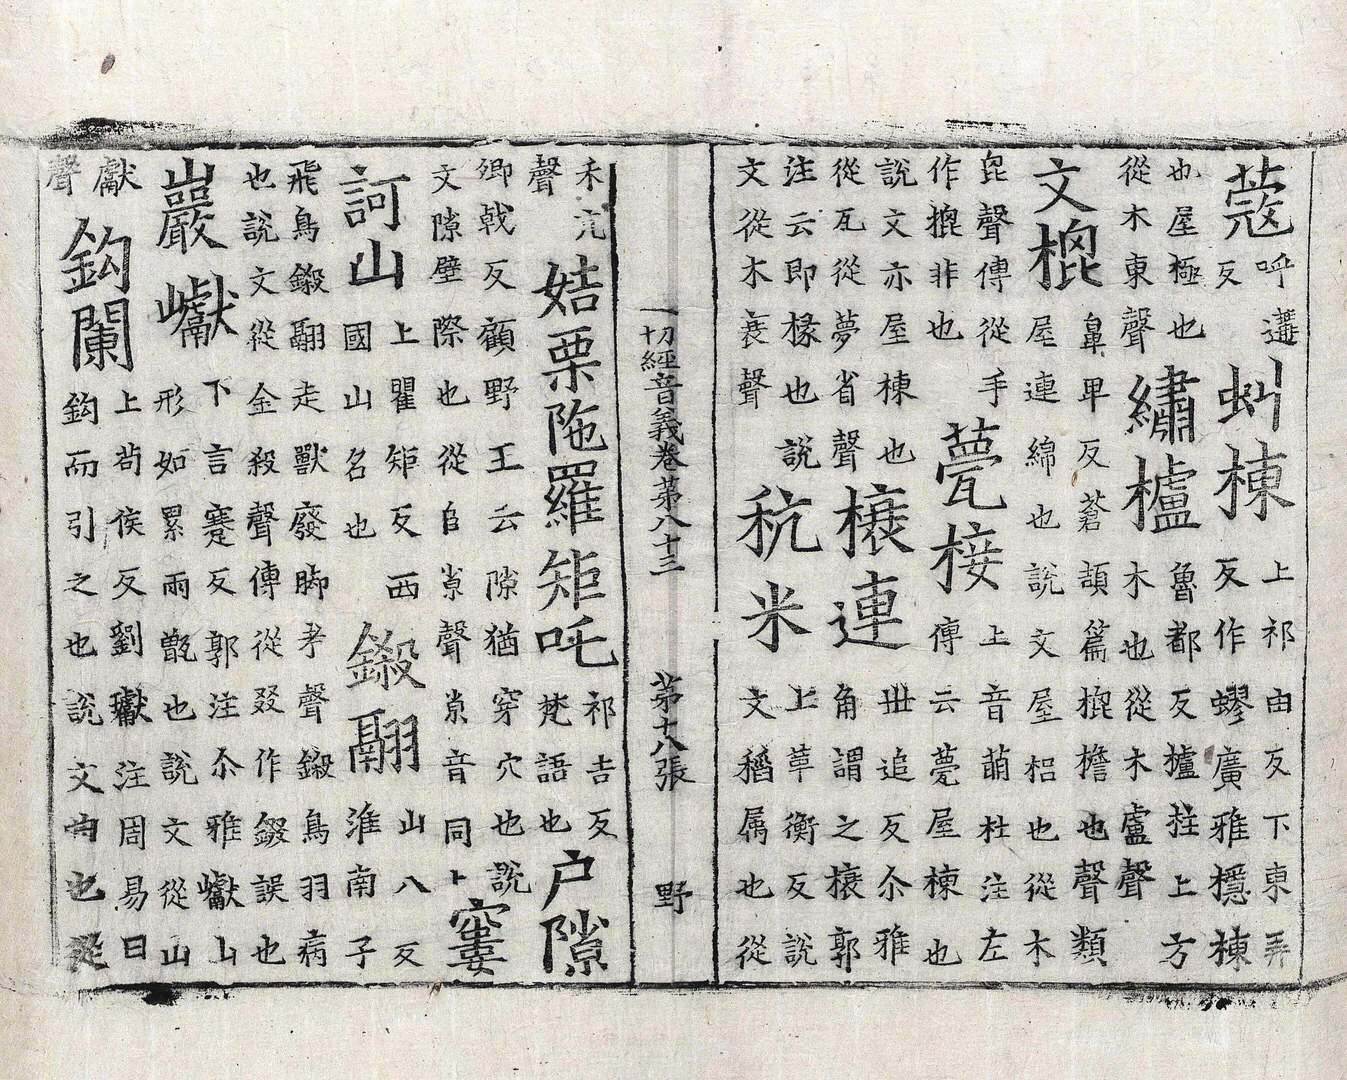 蔻呼遘
反虯棟上祁由反下東弄
反作蟉廣雅穩棟
也屋極也
從木東聲繡櫨魯都反櫨拄上方
木也從木盧聲
文㮰鼻甲反蒼頡篇㮰檐也聲類
屋連綿也說文屋梠也從木
毘聲傳從手
作㮰非也甍接上音萌杜注左
傳云甍屋棟也
說文亦屋棟也
從瓦從夢省聲榱連丗追反尒雅
角謂之榱郭
注云即椽也說
文從木衰聲秔米上革衡反說
文稻属也從
一切經音義卷第八十三 第十八張 野
禾亢
聲姞栗陁羅矩吒祁吉反
梵語也户隙
卿戟反顧野王云隙猶穿穴也說
文隙壁際也從𨸏𡭴聲𡭴音同上窶
訶山上瞿矩反西
國山名也鎩翮山八反
淮南子
飛鳥鎩翮走獸廢脚考聲鎩鳥羽病
也說文從金殺聲傳從殳作鎩誤也
巖巘下言蹇反郭注尒雅巘山
形如累兩甑也說文從山
獻
聲鈎闌上苟侯反劉瓛注周易曰
鈎而引之也說文曲也從